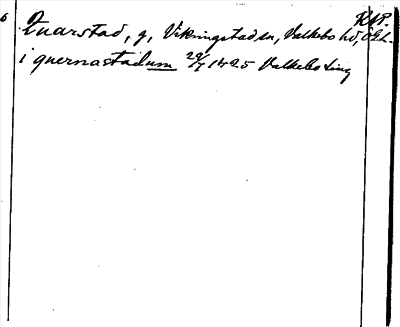 RAP.
Quarstad, g, Vikingstad sn, Valkebo hd, Ögl.
i quernastadum 29/7 1425 Valkebo ting